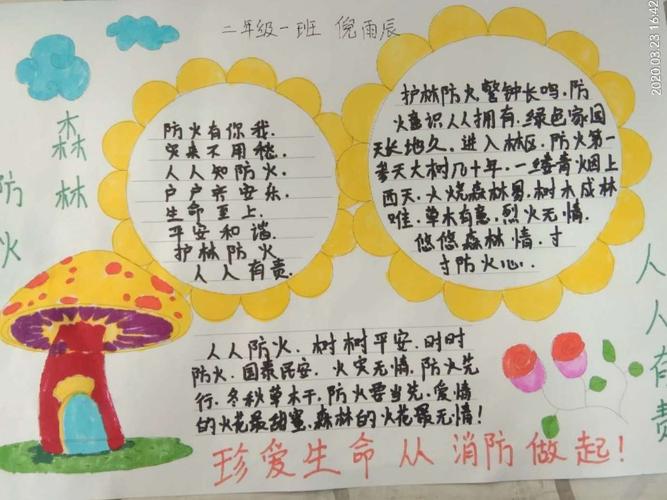 二年级一班 倪雨辰
2020.03.23 16:42
森林
防火
人人有责
防火有你我.
安来不用愁.
人人知防火.
户户齐安乐.
生命至上.
平安和谐.
护林防火
人人有责.
护林防火警钟长鸣.防
火意识人人拥有.绿色家园
天长地久.进入林区.防火第一
参天大树几十年.一缕青烟上
西天.火烧森林易.树木成林
难.草木有意.烈火无情.
悠悠森林情.寸
寸防火心..
人人防火.树树平安.时时
防火.国泰民安.火灾无情.防火先
行.冬秋草木干.防火要当先.爱情
的火花最甜蜜.森林的火花最无情!
珍爱生命从消防做起!